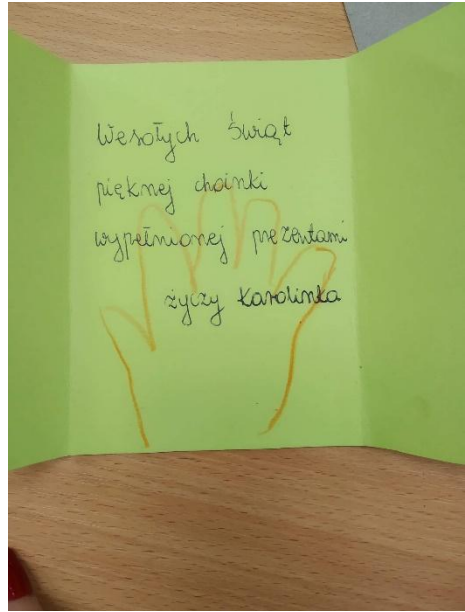 Wesołych Świąt
pięknej choinki
wypełnionej prezentami
życzy Karolinka